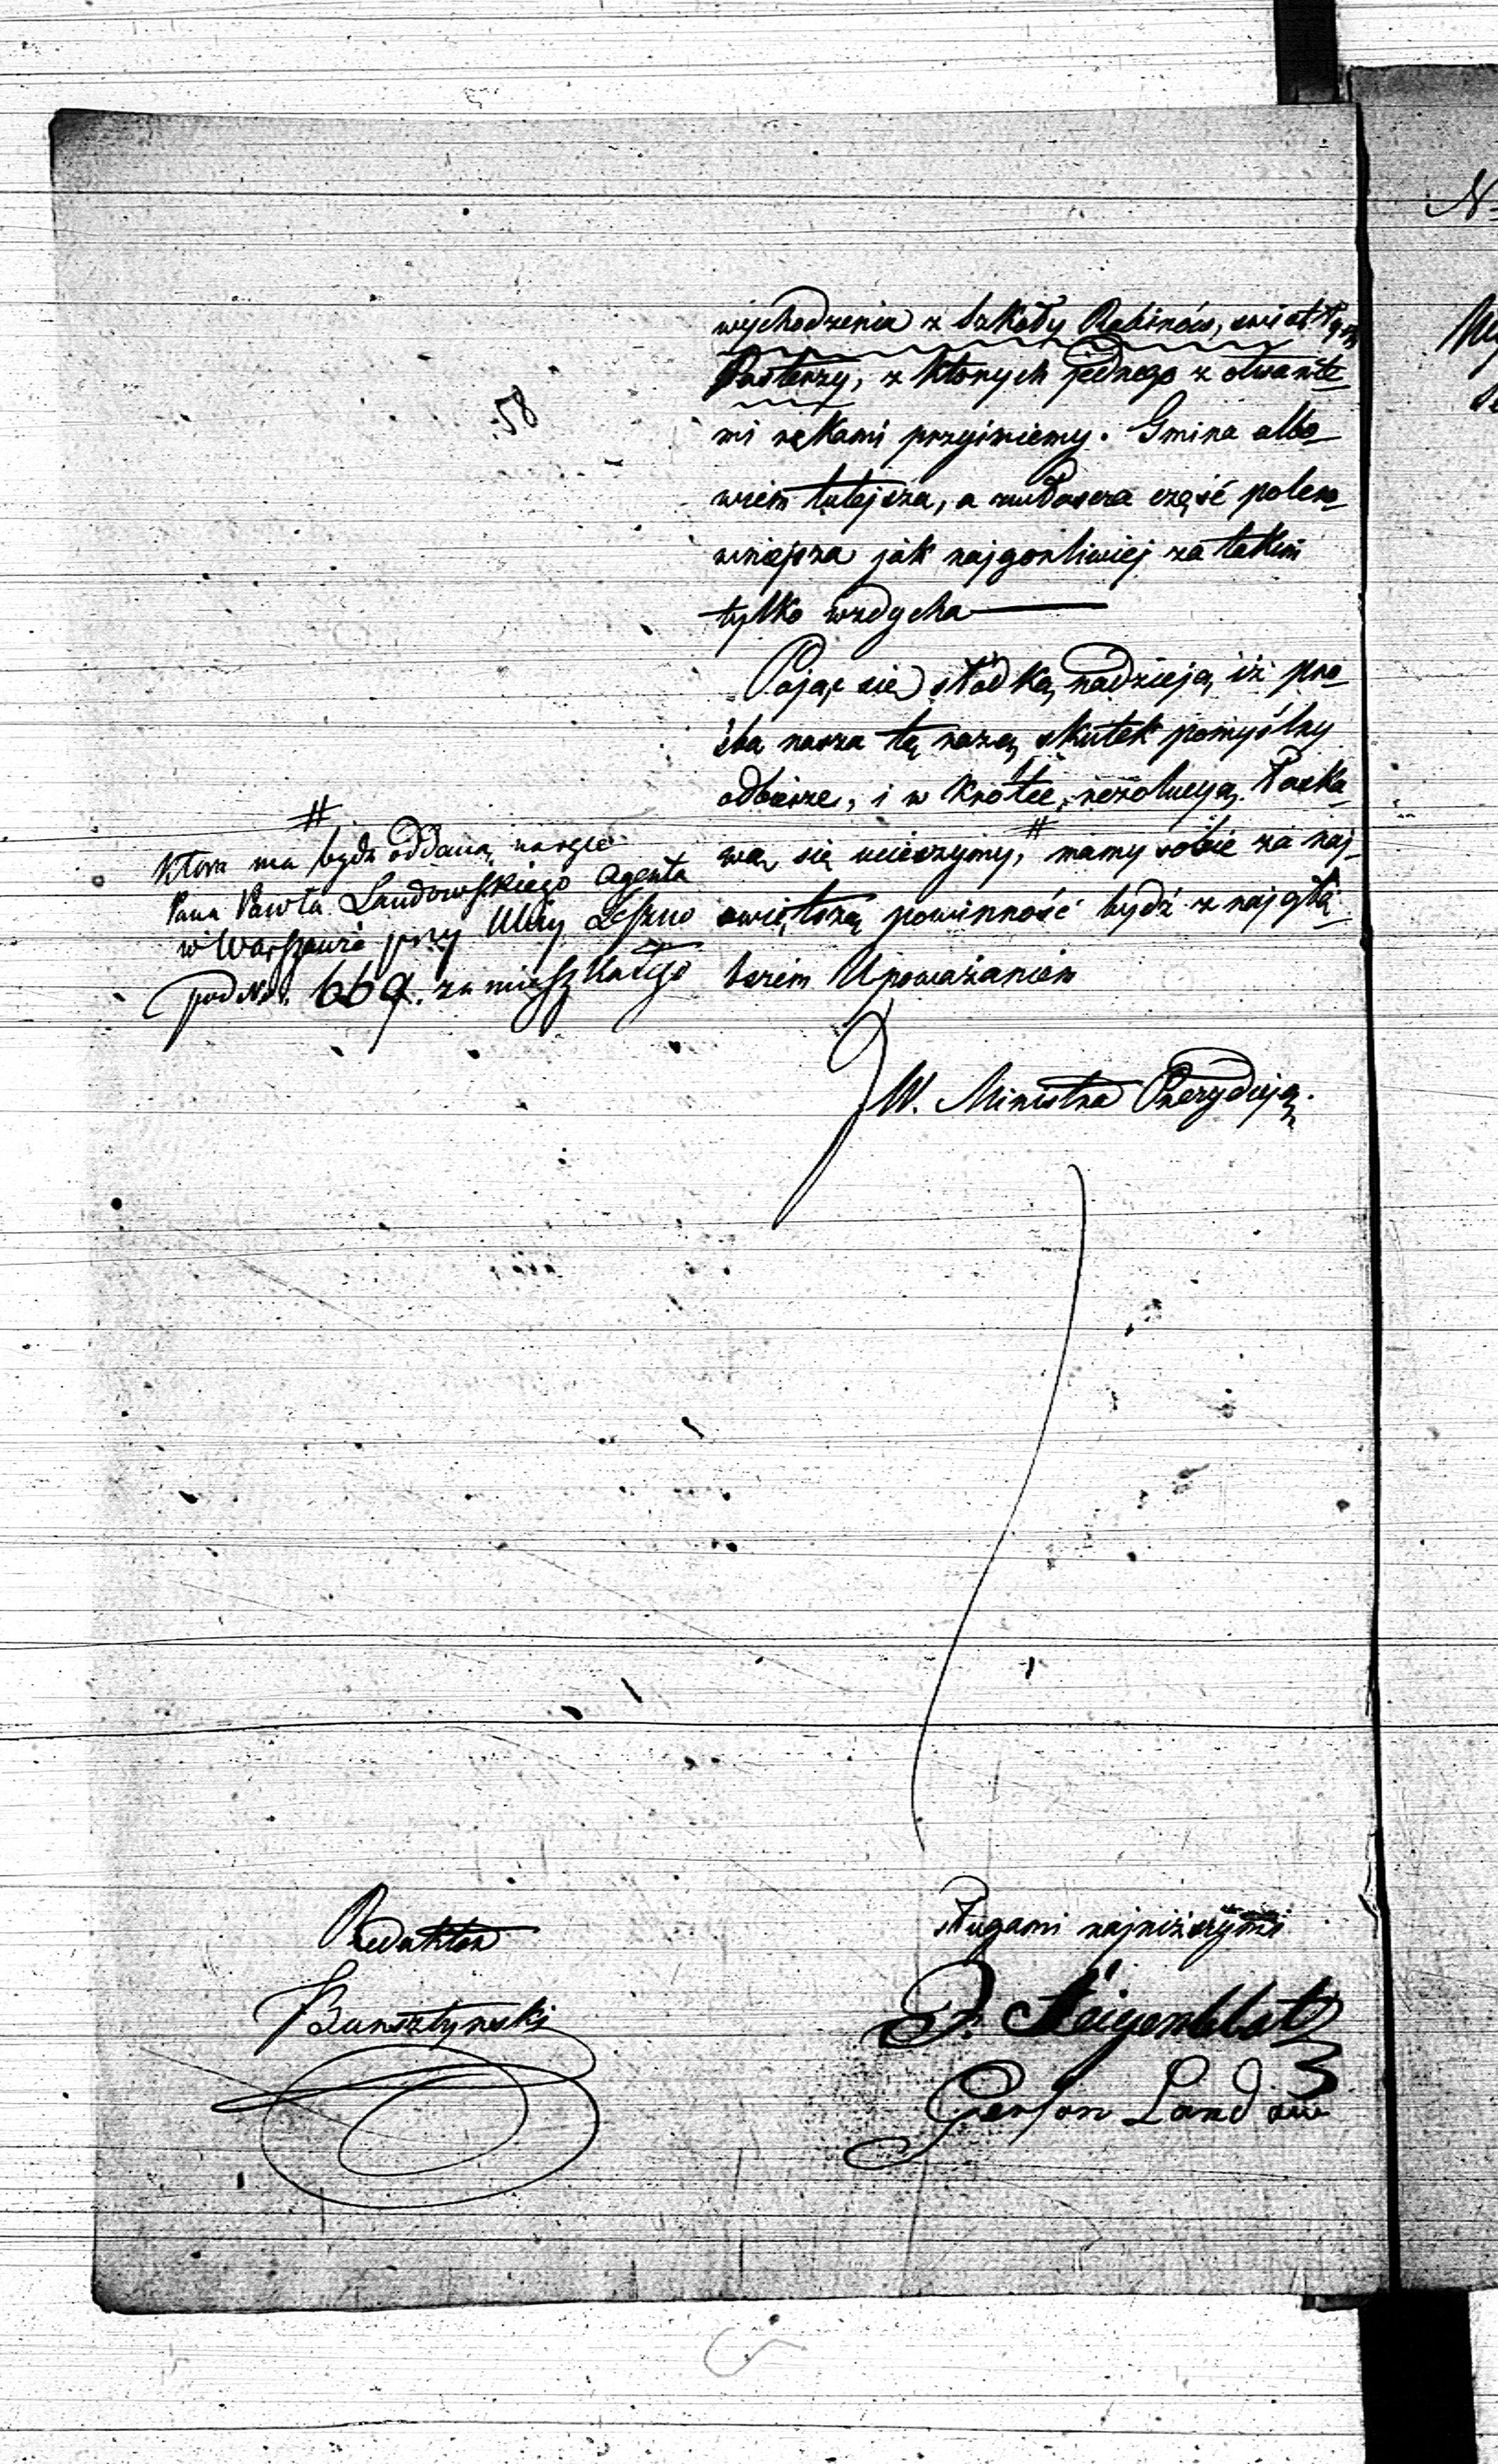 58
wychodzenia z Szkoły Rabinów, świetłym
Pasterzy, z których jednego z otwarte-
mi rękami przyimiemy. Gmina albo-
wiem tutejsza, a zwłaszcza część polero-
wniejsza jak najgorliwiej za takim
tylko wzdycha
Pojąc się słodką nadzieją, iż pro-
śba nasza tą razą skutek pomyślny
odbierze, i w krótce rezolucyą łaska-
wą się ucieszymy, # mamy sobie za naj-
świętszą powinność bydź z najgłę-
bszem Upoważaniem
#
która ma bydź oddaną na ręce
Pana Pawła Landowskiego Agenta
w Warszawie przy Ulicy Leszno
pod No. 669. zamieszkałego
JW. Ministra Prezydują.
Redaktor
Bursztyński
sługami najniższymi
Feigenblat
Gerson Landau
N